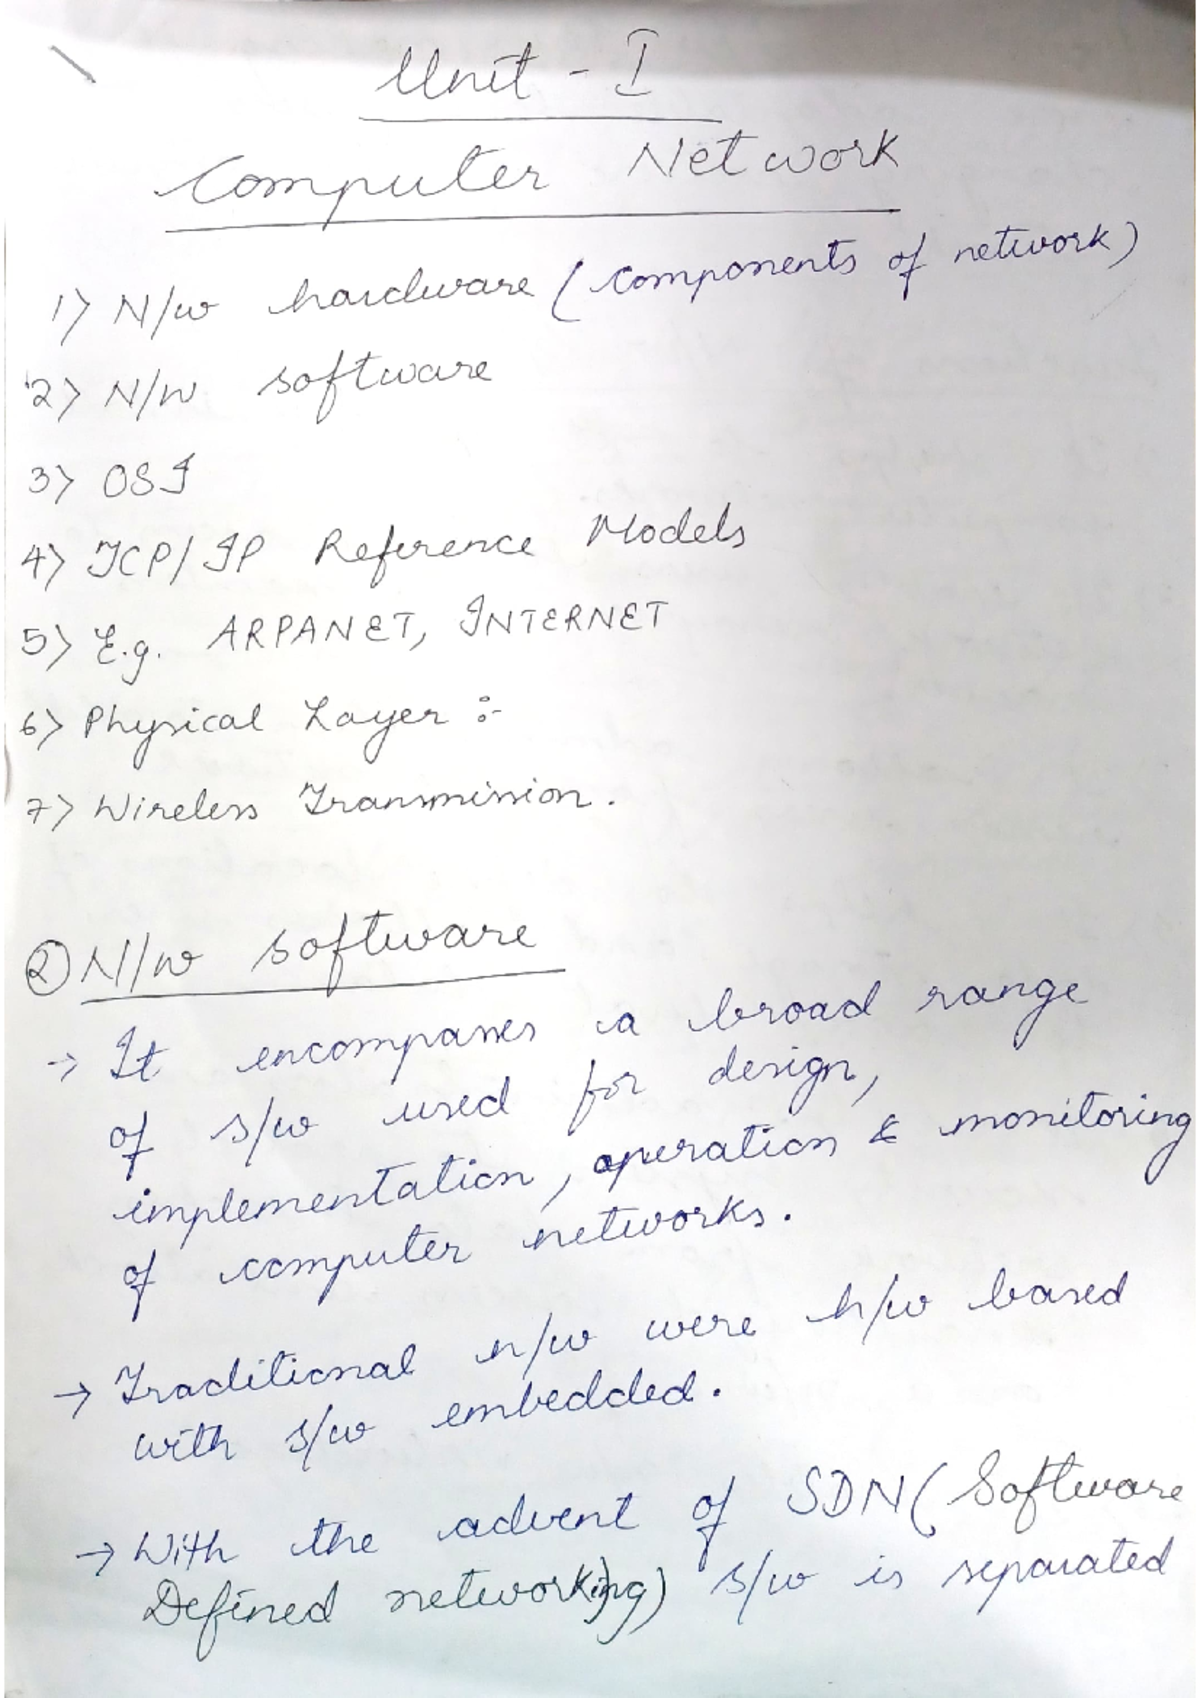 Unit - I
Computer Network
1) N/w hardware (components of network)
2) N/w software
3) OSI
4) TCP/IP Reference Models
5) E.g. ARPANET, INTERNET
6) Physical Layer :-
7) Wireless Transmission.
2) N/w software
→ It encompasses a broad range
of s/w used for design,
implementation, operation & monitoring
of computer networks.
→ Traditional n/w were h/w based
with s/w embedded.
→ With the advent of SDN (Software
Defined networking) s/w is separated